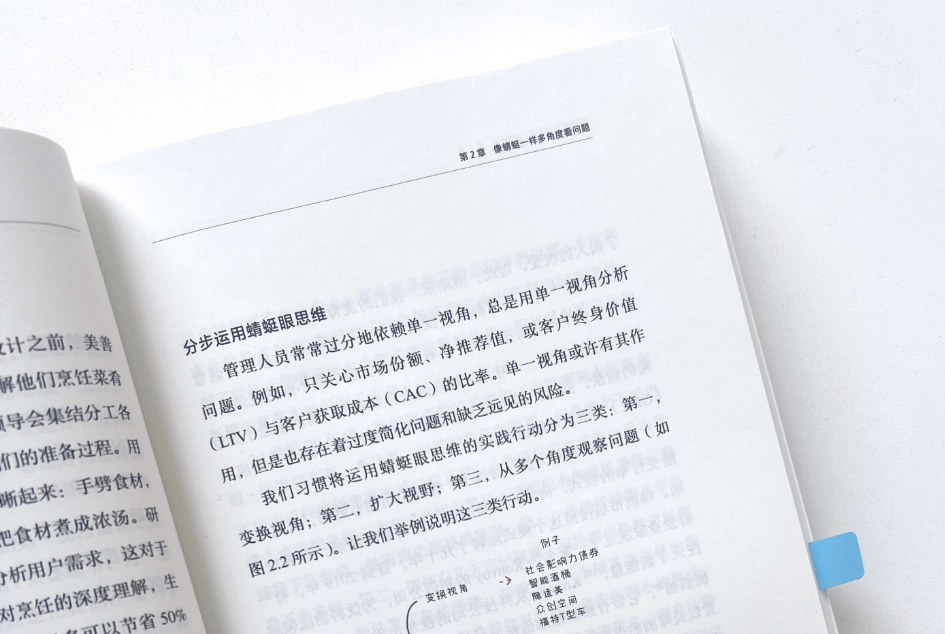 计之前，美善
解他们烹饪菜肴
领导会集结分工各
们的准备过程。用
晰起来：手劈食材，
把食材煮成浓汤。研
分析用户需求，这对于
对烹饪的深度理解，生
可以节省50%
第2章 像蜻蜓一样多角度看问题
分步运用蜻蜓眼思维
管理人员常常过分地依赖单一视角，总是用单一视角分析
问题。例如，只关心市场份额、净推荐值，或客户终身价值
（LTV）与客户获取成本（CAC）的比率。单一视角或许有其作
用，但是也存在着过度简化问题和缺乏远见的风险。
我们习惯将运用蜻蜓眼思维的实践行动分为三类：第一，
变换视角；第二，扩大视野；第三，从多个角度观察问题（如
图2.2所示）。让我们举例说明这三类行动。
例子
变换视角
社会影响力债券
智能酒桶
隐适美
众创空间
福特T型车